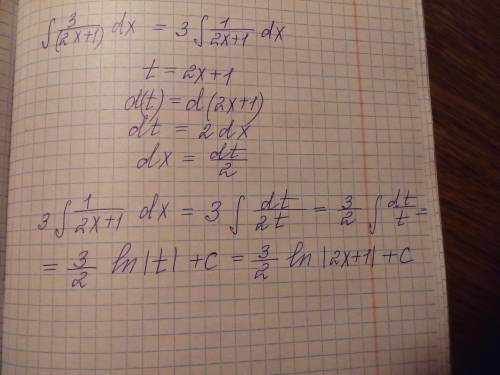 ∫ 3/(2x+1) dx = 3 ∫ 1/2x+1 dx
t = 2x+1
d(t) = d(2x+1)
dt = 2dx
dx = dt/2
3 ∫ 1/2x+1 dx = 3 ∫ dt/2t = 3/2 ∫ dt/t =
= 3/2 ln|t| + C = 3/2 ln|2x+1| + C